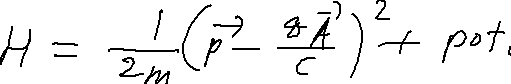 H = \frac{1}{2m} (\vec{p} - \frac{q\vec{A}}{c})^2 + pot.